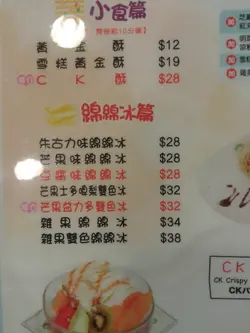 小食篇
黃金酥 $12
雪糕黃金酥 $19
CK酥 $28
綿綿冰篇
朱古力味綿綿冰 $28
芒果味綿綿冰 $28
味綿綿冰 $28
芒果士多啤梨雙色 $32
芒果益力多雙色冰 $32
雜果綿綿冰 $34
雜果雙色綿綿冰 $38
CK
CK Crispy
CK